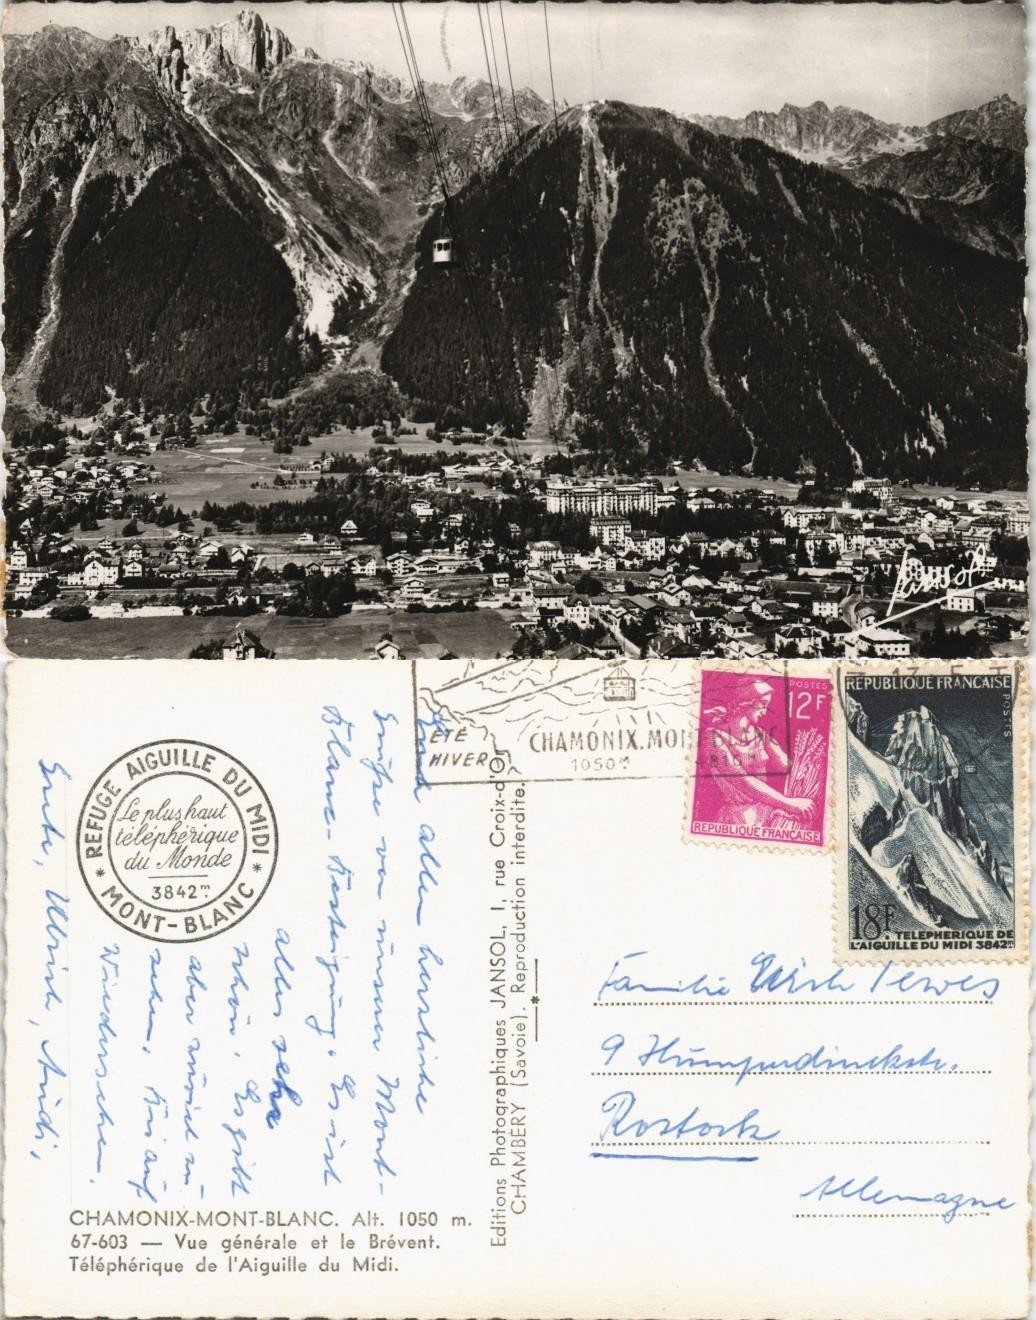 Jansol
ÉTÉ
HIVER
CHAMONIX.MONT BLANC
1050M
POSTES
12F
REPUBLIQUE FRANÇAISE
REPUBLIQUE FRANÇAISE
POSTES
18F.
TELEPHERIQUE DE
L'AIGUILLE DU MIDI 3842m
REFUGE AIGUILLE DU MIDI
* MONT-BLANC *
Le plus haut
téléphérique
du Monde
3842m.
allen herzliche
Grüße von unserer Mont-
Blanc-Besteigung. Es ist
alles sehr
schön. Es gibt
aber zuviel zu
sehen. Bis auf
Wiedersehen.
Gerti, Ulrich, Andi,
Editions Photographiques JANSOL, I, rue Croix-d'Or
CHAMBÉRY (Savoie). Reproduction interdite.
Familie
9 Humperdinckstr.
Rostock
Allemagne
CHAMONIX-MONT-BLANC. Alt. 1050 m.
67-603 — Vue générale et le Brévent.
Téléphérique de l'Aiguille du Midi.